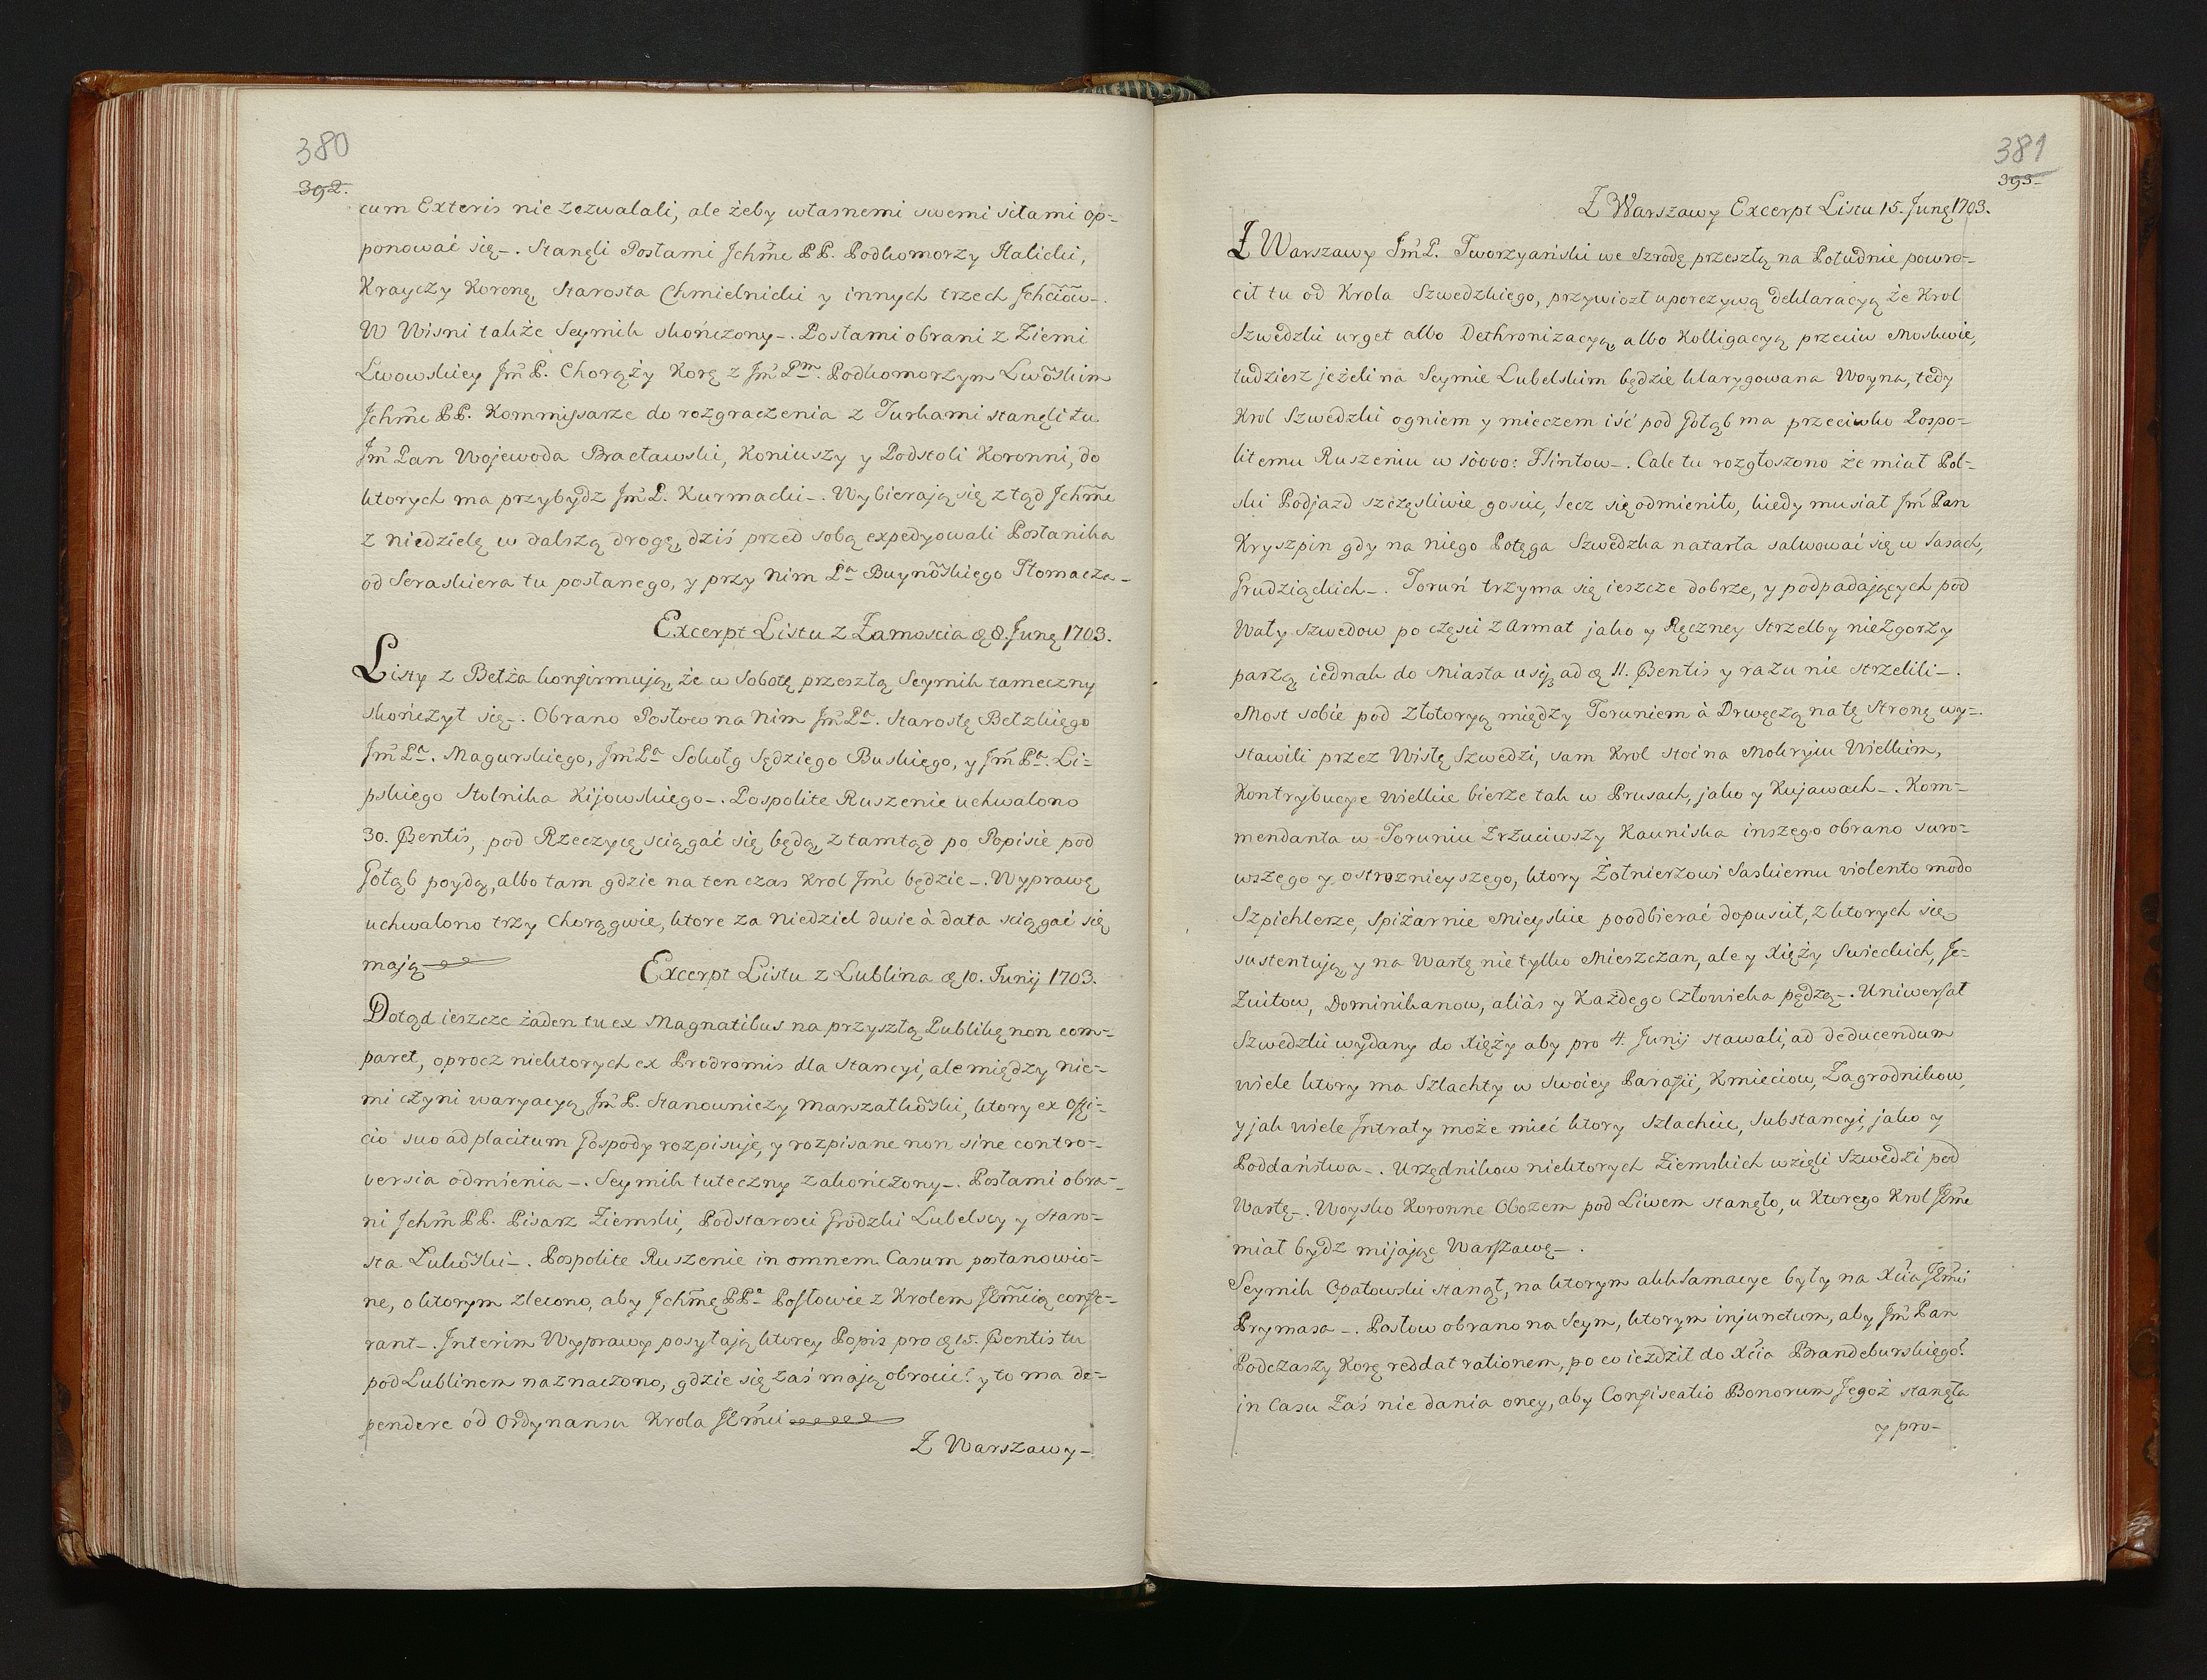 380
392.
cum Exteris nie zezwalali, ale żeby własnemi swemi siłami op-
ponować się-. Stanęli Posłami Jchm̃e PP. Podkomorzy Halicki,
Krayczy Koronę, Starosta Chmielnicki y innych trzech Jchciõw-.
W Wisni także Seymik skończony-. Posłami obrani z Ziemi
Lwowskiey Jm̃ P. Chorąży Korę z Jm̃ Pm. Podkomorzym Lwõskim
Jchm̃e PP. Kommissarze do rozgraczenia z Turkami stanęli tu
Jm̃ Pan Wojewoda Bracławski, Koniuszy y Podstoli Koronni, do
ktorych ma przybydz Jm̃ P. Kurmacki-. Wybierają się ztąd Jchm̃e
z niedzielę w dalszą drogę, dziś przed sobą expedyowali Posłanika
od Seraskiera tu posłanego, y przy nim Pa Buynõskiego Tłomacza-
Excerpt Listu z Zamoscia ꝗ 8. Junę 1703.
Listy z Bełza konfirmują, że w Sobotę przeszłą Seymik tameczny
skończył się-. Obrano Posłow na nim Jm̃ Pa. Starostę Bełzkiego
Jm̃ Pa. Magurskiego, Jm̃ Pa Sokołg Sędziego Buskiego, y Jm̃ Pa. Li-
pskiego Stolnika Kijowskiego-. Pospolite Ruszenie uchwalono
30. Ꝑentis, pod Rzeczycę sciągać się będą, ztamtąd po Popisie pod
Gołąb poydą, albo tam gdzie na ten czas Krol Jm̃c będzie-. Wyprawę
uchwalono trzy Chorągwie, ktore za Niedziel dwie à data sciągać się
mają
Excerpt Listu z Lublina ꝗ 10. Junij 1703.
Dotąd ieszcze żaden tu ex Magnatibus na przyszłą Publikę non com-
paret, oprocz niektorych ex Prodromis dla Stancyi, ale między nie-
mi czyni waryacyą Jm̃ P. Stanowniczy Marszałkõski, ktory ex offi-
cio suo ad placitum Gospody rozpisuje, y rozpisane non sine contro-
versia odmienia-. Seymik tuteczny zakończony-. Posłami obra-
ni Jchm̃ PP. Pisarz Ziemski, Podstarosci Grodzki Lubelscy y Staro-
sta Lukõski-. Pospolite Ruszenie in omnem Casum postanowio-
ne, o ktorym zlecono, aby Jchm̃ę PPe Posłowie z Krolem JKm̃cią confe-
rant-. Interim Wyprawy posyłają ktorey Popis pro ꝗ 15. Ꝑentis tu
pod Lublinem naznaczono, gdzie się zaś mają obrocić? y to ma de-
pendere od Ordynansu Krola JKm̃ci
Z Warszawy-
381
393-
Z Warszawy Excerpt Listu 15. Junę 1703.
Z Warszawy Jm̃ P. Tworzyański we Szrodę przeszłą na Południe powro-
cił tu od Krola Szwedzkiego, przywiozł uporczywą deklaracyą że Krol
Szwedzki urget albo Dethronizacyą, albo Kolligacyą przeciw Moskwie,
tudziesz jeżeli na Seymie Lubelskim będzie klarygowana Woyna, tedy
Krol Szwedzki ogniem y mieczem iść pod Gołąb ma przeciwko Pospo-
litemu Ruszeniu w 10000: Flintow-. Cale tu rozgłoszono że miał Pol-
ski Podjazd szczęsliwie goscic, lecz się odmieniło, kiedy musiał Jm̃ Pan
Kryszpin gdy na niego Potęga Szwedzka natarła salwować się w Lasach,
Grudziąckich-. Toruń trzyma się ieszcze dobrze, y podpadających pod
Wały Szwedow po części z Armat jako y Ręczney Strzelby niezgorzy
parzą iednak do Miasta usq, ad ꝗ 11. Ꝑentis y razu nie strzelili-.
Most sobie pod Złotoryą między Toruniem à Drwęczą na tę Stronę wy-
stawili przez Wisłę Szwedzi, sam Krol stoi na Mokryiu Wielkim,
Kontrybucye wielkie bierze tak w Prusach, jako y Kujawach-. Kom-
mendanta w Toruniu zrzuciwszy Kauniska inszego obrano suro-
wszego y ostroznieyszego, ktory Żołnierzowi Saskiemu violento modo
Szpichlerze, Spiżarnie Mieyskie poodbierać dopuscił, z ktorych się
sustentują y na Wartę nie tylko Mieszczan, ale y Xięży Swieckich, Je-
zuitow, Dominikanow, aliàs y Każdego Człowieka pędzą-. Uniwersał
Szwedzki wydany do Xięży aby pro 4. Junij stawali, ad deducendum
wiele ktory ma Szlachty w swoiey Parafii, Kmieciow, Zagrodnikow,
y jak wiele Jntraty może mieć ktory Szlachcic, Substancyi, jako y
Poddaństwa-. Urzędnikow niektorych Ziemskich wzięli Szwedzi pod
Wartę-. Woysko Koronne Obozem pod Liwem stanęło, u ktorego Krol JKm̃c
miał bydz mijając Warszawę-.
Seymik Opatowski stanął, na ktorym akklamacye były na Xcia JEm̃ci
Prymasa-. Posłow obrano na Seym, ktorym injunctum, aby Jm̃ Pan
Podczaszy Korę reddat rationem, po co iezdził do Xcia Brandeburskiego?
in Casu zaś nie dania oney, aby Confiscatio Bonorum Jegoż stanęła
y pro-